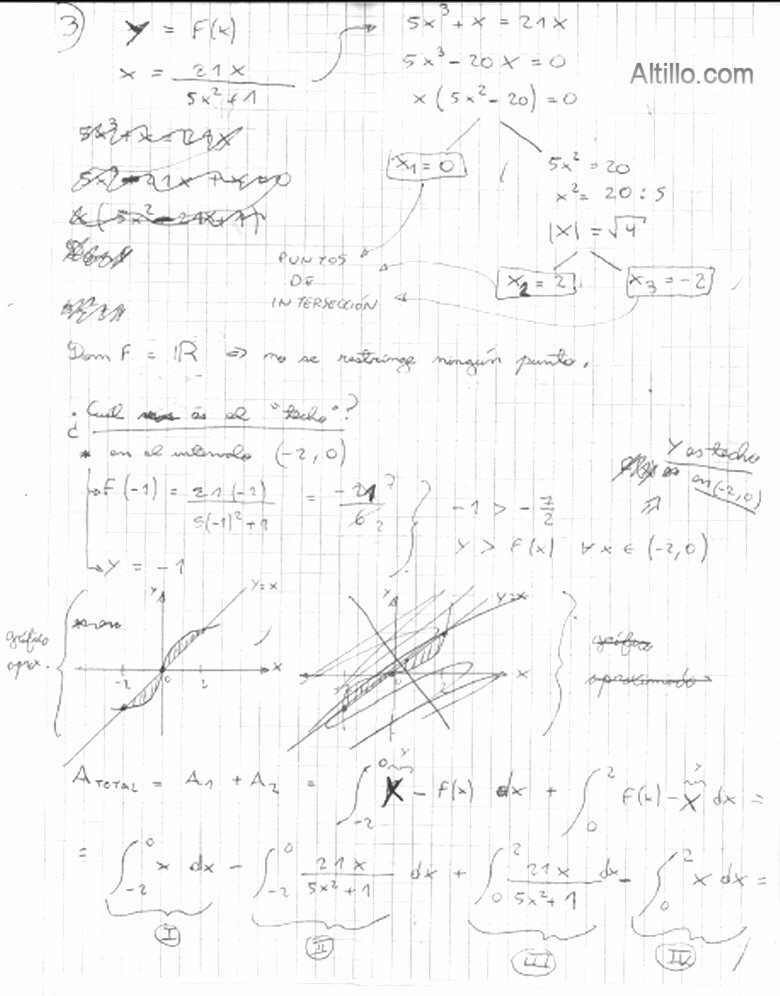 3) y = F(x)
x = 21x / (5x² + 1)
5x³ + x = 21x
5x³ - 20x = 0
x (5x² - 20) = 0
Altillo.com
x₁ = 0
5x² = 20
x² = 20 : 5
|x| = √4
x₂ = 2
x₃ = -2
PUNTOS
DE
INTERSECCIÓN
Dom F = ℝ ⇒ no se restringe ningún punto.
¿Cuál es el "techo"?
* en el intervalo (-2, 0)
F(-1) = 21(-1) / (5(-1)² + 1) = -21 / 6
7
2
-1 > -7/2
y > f(x) ∀ x ∈ (-2, 0)
y = -1
Y es techo
en (-2, 0)
⇒
gráfico
aprox.
y
y = x
-2 0 2 x
y
y = x
-2 0 2 x
gráfico
aproximado
A TOTAL = A₁ + A₂ = ∫₋₂⁰ x - f(x) dx + ∫₀² f(x) - x dx =
= ∫₋₂⁰ x dx - ∫₋₂⁰ 21x / (5x² + 1) dx + ∫₀² 21x / (5x² + 1) dx - ∫₀² x dx =
I II III IV